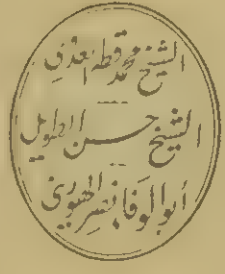 الشيخ محمد قطه العدوي
الشيخ حسن الطويل
أبو الوفا نصر الهوريني